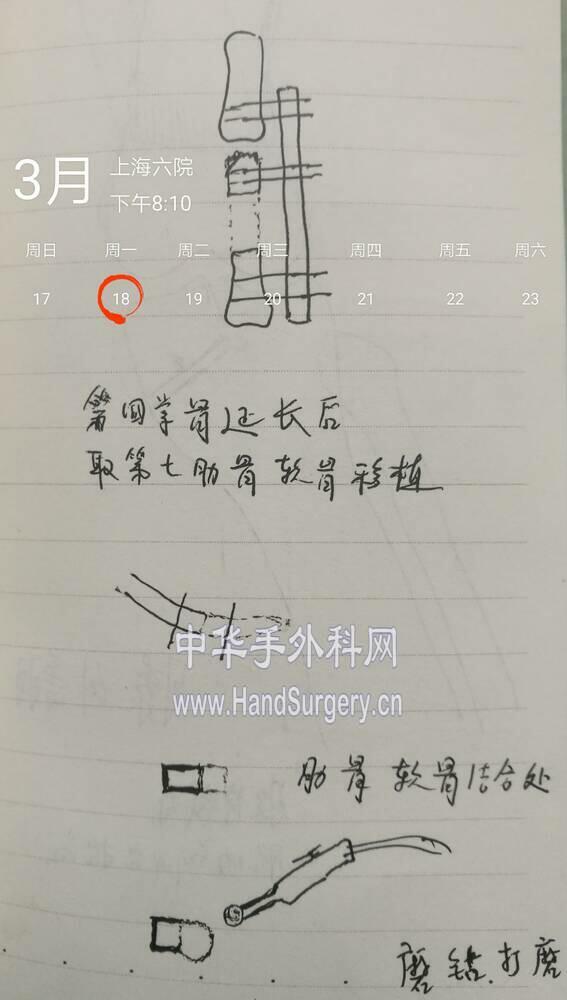 3月
上海六院
下午8:10
周日 周一 周二 周三 周四 周五 周六
17 18 19 20 21 22 23
第四掌骨延长后
取第七肋骨软骨移植
中华手外科网
www.HandSurgery.cn
肋骨软骨结合处
磨钻.打磨